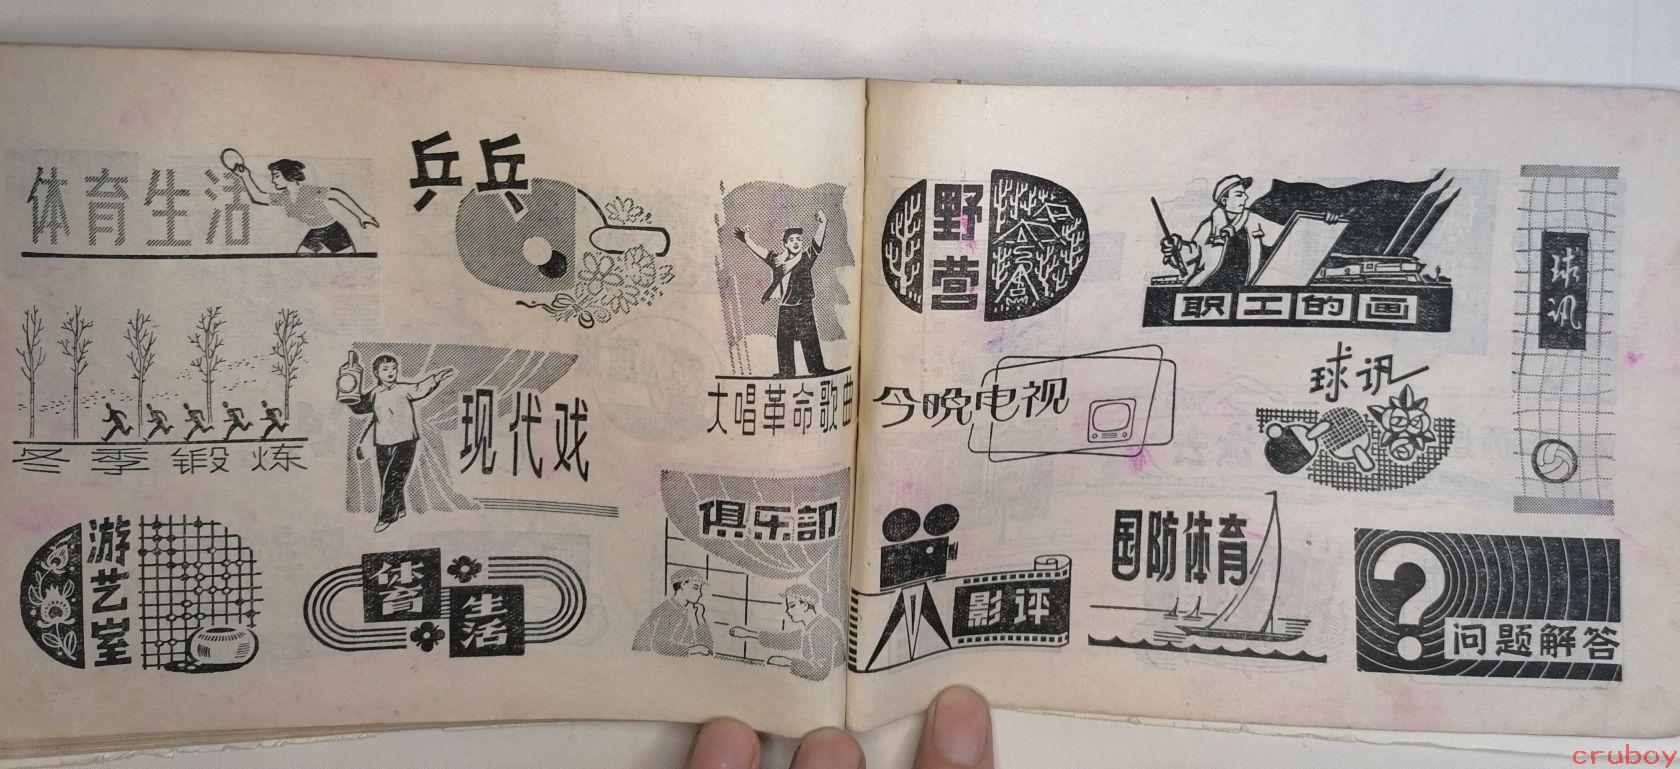 体育生活
乒乓
冬季锻炼
现代戏
大唱革命歌曲
游艺室
体育
生活
俱乐部
野营
职工的画
球讯
今晚电视
球讯
影评
国防体育
?
问题解答
cruboy